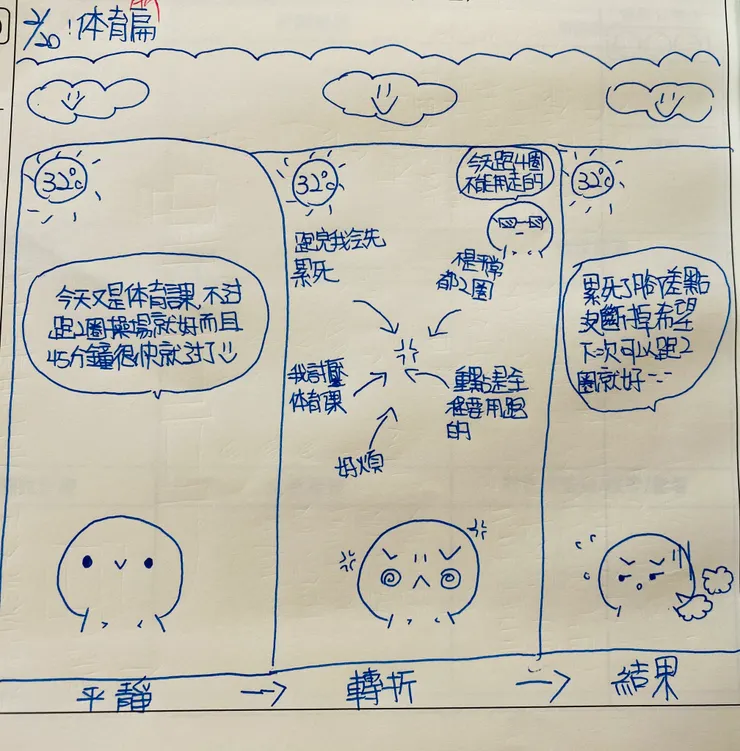 2/20:体育扁
32°c
今天又是体育課,不过
跑2圈操場就好而且
45分鐘很快就过了
32°c
今天跑4圈
不能用走的
跑完我会先
累死
不是平常
都2圈
我討壓
体育課
重點是全
程要用跑
的
好煩
32°c
累死了腳差點
要斷掉希望
下次可以跑2
圈就好--
平靜
轉折
結果